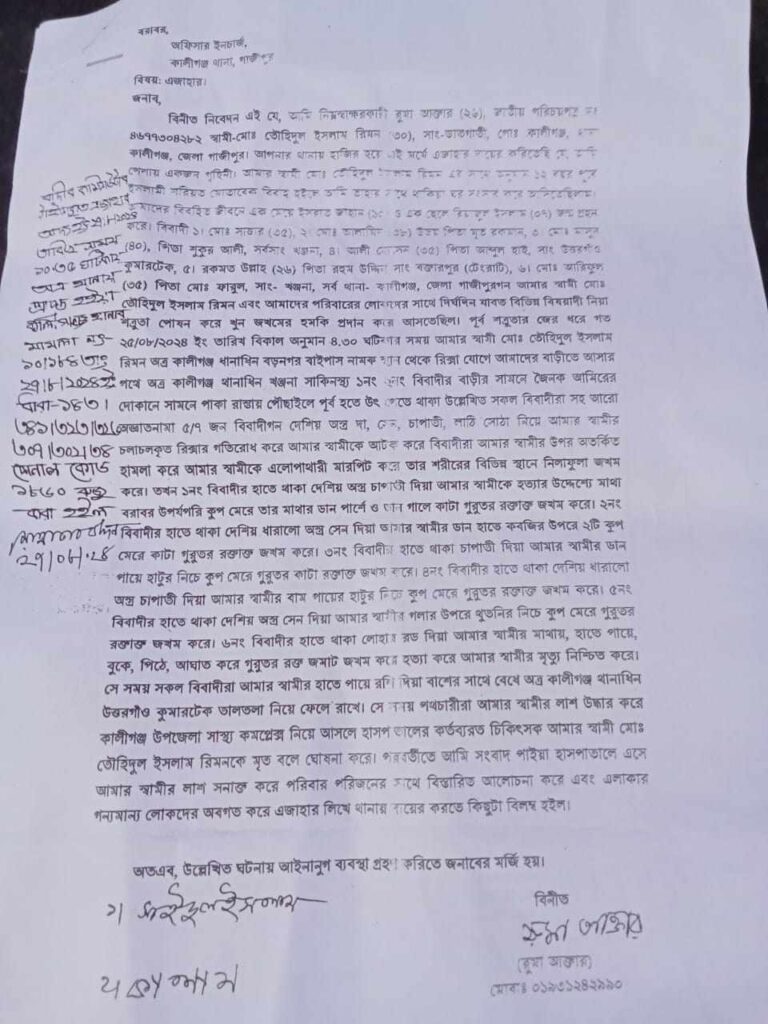 বরাবর,
অফিসার ইনচার্জ,
কালীগঞ্জ থানা, গাজীপুর
বিষয়: এজাহার।
জনাব,
বিনীত নিবেদন এই যে, আমি নিম্নস্বাক্ষরকারী রুমা আক্তার (২৬), জাতীয় পরিচয়পত্র নং
৪৬৭৭৩০৪২৮২ স্বামী-মোঃ তৌহিদুল ইসলাম রিমন (৩০), সাং-ভাতগাতী, পোঃ কালীগঞ্জ, থানা
কালীগঞ্জ, জেলা গাজীপুর। আপনার থানায় হাজির হয়ে এই মর্মে এজাহার দায়ের করিতেছি যে, আমি
পেশায় একজন গৃহিনী। আমার স্বামী মোঃ তৌহিদুল ইসলাম রিমন এর সাথে ১২ বছর পূর্বে
ইসলামী শরিয়ত মোতাবেক বিবাহ হইলে আমি তাহার সাথে থাকিয়া ঘর সংসার করে আসিতেছিলাম।
আমাদের বিবাহিত জীবনে এক মেয়ে ইসরাত জাহান ও এক ছেলে ইসলাম (০৭) জন্ম গ্রহন
করে। বিবাদী ১। মোঃ সাত্তার (৩৫), ২। মোঃ (৩৮) উভয় পিতা মৃত রহমান, ৩। মোঃ মাসুম
(৪০), পিতা শুকুর আলী, সর্বসাং খঞ্জনা, ৪। আলী হোসেন (৩৫) পিতা আব্দুল হাই, সাং উত্তরগাঁও
কুমারটেক, ৫। রকমত উল্লাহ (২৬) পিতা রহম উদ্দিন সাং বক্তারপুর (টেংরাটি), ৬। মোঃ আরিফুল
(৩৫) পিতা মোঃ ফাবুল, সাং- খঞ্জনা, সর্ব থানা- কালীগঞ্জ, জেলা গাজীপুরগন আমার স্বামী মোঃ
তৌহিদুল ইসলাম রিমন এবং আমাদের পরিবারের লোকজনের সাথে দির্ঘদিন যাবত বিভিন্ন বিষয়াদী নিয়া
শত্রুতা পোষন করে খুন জখমের হুমকি প্রদান করে আসতেছিল। পূর্ব শত্রুতার জের ধরে গত
২৫/০৮/২০২৪ ইং তারিখ বিকাল অনুমান ৪.৩০ ঘটিকার সময় আমার স্বামী মোঃ তৌহিদুল ইসলাম
রিমন অত্র কালীগঞ্জ থানাধিন বড়নগর বাইপাস নামক স্থান থেকে রিক্সা যোগে আমাদের বাড়ীতে আসার
পথে অত্র কালীগঞ্জ থানাধিন খঞ্জনা সাকিনস্থ ১নং বিবাদীর বাড়ীর সামনে জৈনক আমিরের
দোকানে সামনে পাকা রাস্তায় পৌছাইলে পূর্ব হতে উৎ পেতে থাকা উল্লেখিত সকল বিবাদীরা সহ আরো
অজ্ঞাতনামা ৫/৭ জন বিবাদীগন দেশিয় অস্ত্র দা, সেন, চাপাতী, লাঠি সোঠা নিয়ে আমার স্বামীর
চলাচলকৃত রিক্সার গতিরোধ করে আমার স্বামীকে আটক করে বিবাদীরা আমার স্বামীর উপর অতর্কিত
হামলা করে আমার স্বামীকে এলোপাথারী মারপিট করে তার শরীরের বিভিন্ন স্থানে নিলাফুলা জখম
করে। তখন ১নং বিবাদীর হাতে থাকা দেশিয় অস্ত্র চাপাতী দিয়া আমার স্বামীকে হত্যার উদ্দেশ্যে মাথা
বরাবর উপর্যপরি কুপ মেরে তার মাথার ডান পার্শে ও ডান গালে কাটা গুরুতর রক্তাক্ত জখম করে। ২নং
বিবাদীর হাতে থাকা দেশিয় ধারালো অস্ত্র সেন দিয়া আমার স্বামীর ডান হাতে কবজির উপরে ২টি কুপ
মেরে কাটা গুরুতর রক্তাক্ত জখম করে। ৩নং বিবাদীর হাতে থাকা চাপাতী দিয়া আমার স্বামীর ডান
পায়ে হাটুর নিচে কুপ মেরে গুরুতর কাটা রক্তাক্ত জখম করে। ৪নং বিবাদীর হাতে থাকা দেশিয় ধারালো
অস্ত্র চাপাতী দিয়া আমার স্বামীর বাম পায়ের হাটুর নিচে কুপ মেরে গুরুতর রক্তাক্ত জখম করে। ৫নং
বিবাদীর হাতে থাকা দেশিয় অস্ত্র সেন দিয়া আমার স্বামীর গলার উপরে থুতনির নিচে কুপ মেরে গুরুতর
রক্তাক্ত জখম করে। ৬নং বিবাদীর হাতে থাকা লোহার রড দিয়া আমার স্বামীর মাথায়, হাতে পায়ে,
বুকে, পিঠে, আঘাত করে গুরুতর রক্ত জমাট জখম করে হত্যা করে আমার স্বামীর মৃত্যু নিশ্চিত করে।
সে সময় সকল বিবাদীরা আমার স্বামীর হাতে পায়ে রশি দিয়া বাশের সাথে বেধে অত্র কালীগঞ্জ থানাধিন
উত্তরগাঁও কুমারটেক তালতলা নিয়ে ফেলে রাখে। সে সময় পথচারীরা আমার স্বামীর লাশ উদ্ধার করে
কালীগঞ্জ উপজেলা সাস্থ্য কমপ্লেক্স নিয়ে আসলে হাসপাতালের কর্তব্যরত চিকিৎসক আমার স্বামী মোঃ
তৌহিদুল ইসলাম রিমনকে মৃত বলে ঘোষনা করে। পরবর্তীতে আমি সংবাদ পাইয়া হাসপাতালে এসে
আমার স্বামীর লাশ সনাক্ত করে পরিবার পরিজনের সাথে বিস্তারিত আলোচনা করে এবং এলাকার
গন্যমান্য লোকদের অবগত করে এজাহার লিখে থানায় দায়ের করতে কিছুটা বিলম্ব হইল।
অতএব, উল্লেখিত ঘটনায় আইনানুগ ব্যবস্থা গ্রহণ করিতে জনাবের মর্জি হয়।
বিনীত
রুমা আক্তার
(রুমা আক্তার)
মোবাঃ ০১৯৩১২৪২৯৯০
১। সাইদুল ইসলাম
২। কালাম
মামলা নং-
ধারা-১৪৩।
৩৪১/৩২৩/৩২৬
৩০৭/৩০২/৩৪
পেনাল কোড
১৮৬০ রুজু
করা হইল